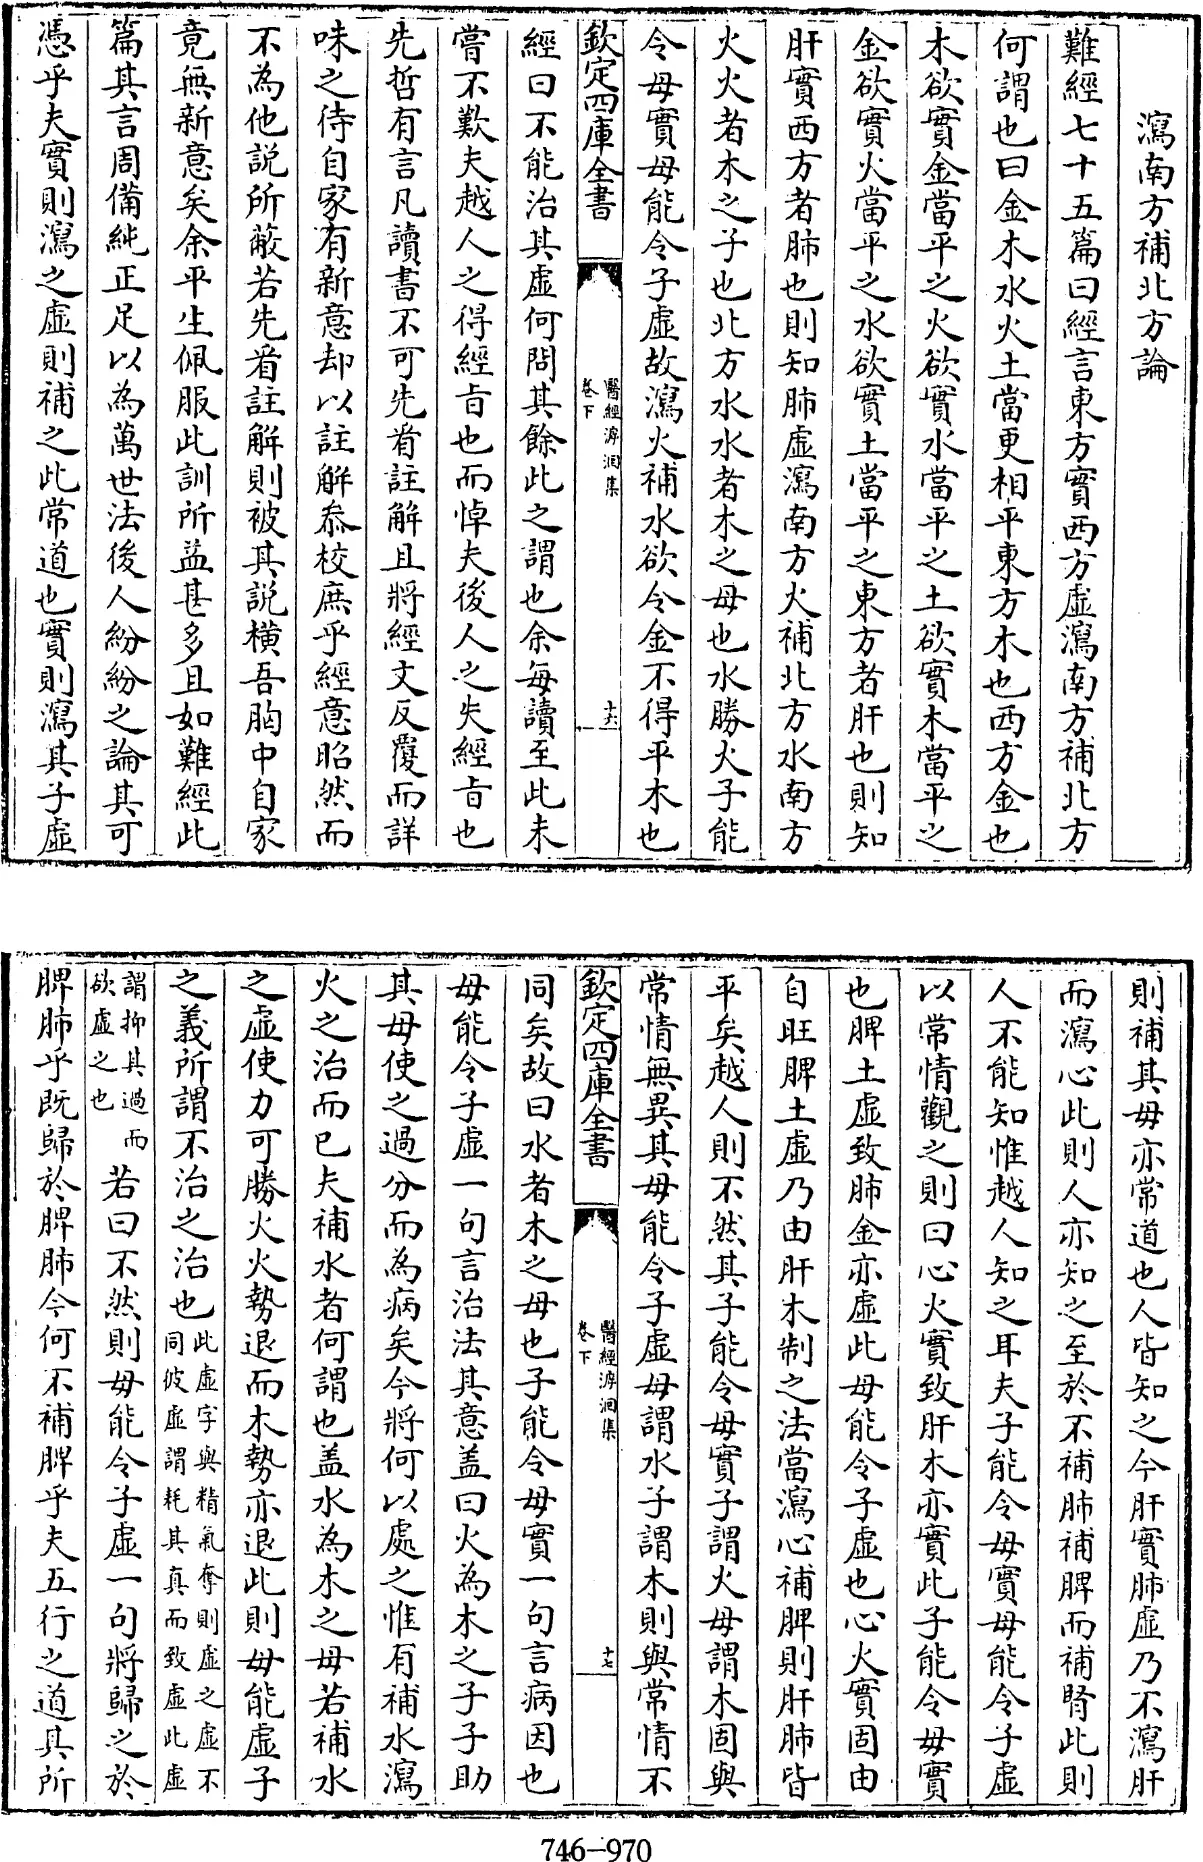 瀉南方補北方論
難經七十五篇曰經言東方實西方虛瀉南方補北方
何謂也曰金木水火土當更相平東方木也西方金也
木欲實金當平之火欲實水當平之土欲實木當平之
金欲實火當平之水欲實土當平之東方者肝也則知
肝實西方者肺也則知肺虛瀉南方火補北方水南方
火火者木之子也北方水水者木之母也水勝火子能
令母實母能令子虛故瀉火補水欲令金不得平木也
欽定四庫全書
醫經溯洄集
卷下
十六
經曰不能治其虛何問其餘此之謂也余每讀至此未
嘗不歎夫越人之得經旨也而悼夫後人之失經旨也
先哲有言凡讀書不可先看註解且將經文反覆而詳
味之待自家有新意却以註解叅校庶乎經意昭然而
不為他說所蔽若先看註解則被其說橫吾胸中自家
竟無新意矣余平生佩服此訓所益甚多且如難經此
篇其言周備純正足以為萬世法後人紛紛之論其可
憑乎夫實則瀉之虛則補之此常道也實則瀉其子虛
則補其母亦常道也人皆知之今肝實肺虛乃不瀉肝
而瀉心此則人亦知之至於不補肺補脾而補腎此則
人不能知惟越人知之耳夫子能令母實母能令子虛
以常情觀之則曰心火實致肝木亦實此子能令母實
也脾土虛致肺金亦虛此母能令子虛也心火實固由
自旺脾土虛乃由肝木制之法當瀉心補脾則肝肺皆
平矣越人則不然其子能令母實子謂火母謂木固與
常情無異其母能令子虛母謂水子謂木則與常情不
欽定四庫全書
醫經溯洄集
卷下
十七
同矣故曰水者木之母也子能令母實一句言病因也
母能令子虛一句言治法其意盖曰火為木之子子助
其母使之過分而為病矣今將何以處之惟有補水瀉
火之治而已夫補水者何謂也盖水為木之母若補水
之虛使力可勝火火勢退而木勢亦退此則母能虛子
之義所謂不治之治也此虛字與精氣奪則虛之虛不
同彼虛謂耗其真而致虛此虛
謂抑其過而
欲虛之也若曰不然則母能令子虛一句將歸之於
脾肺乎既歸於脾肺今何不補脾乎夫五行之道其所
746-970